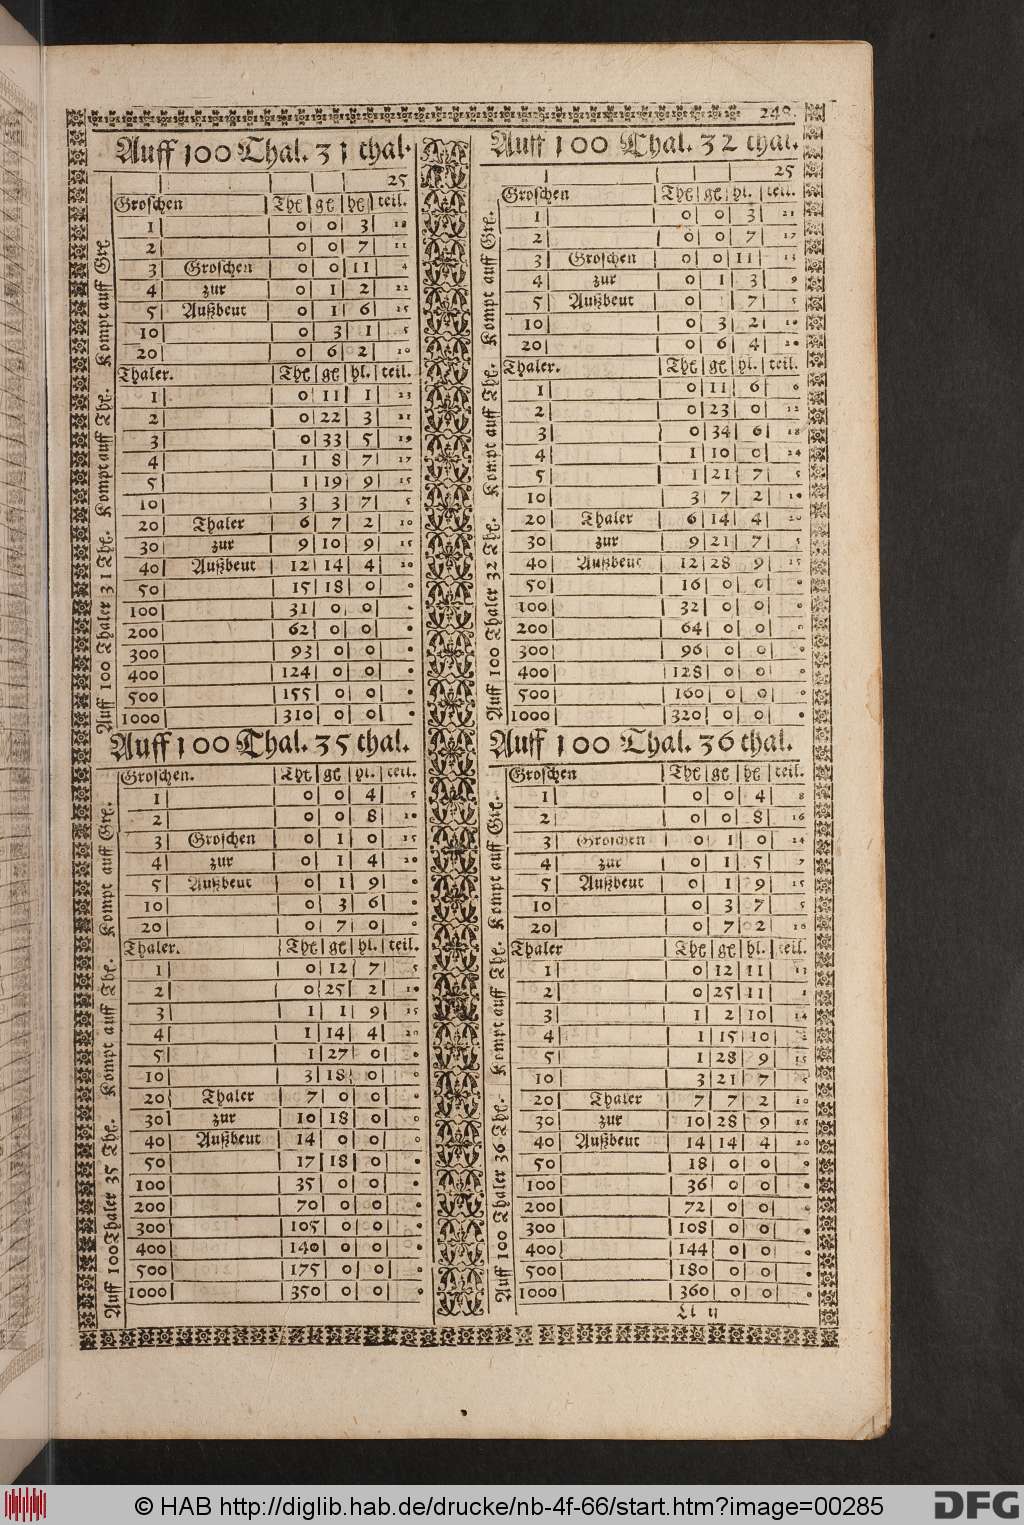 248.
Auff 100 Thal. 31 thal.
25
Groschen | Thl | gl | hl | teil.
1 | 0 | 0 | 3 | 18
2 | 0 | 0 | 7 | 11
3 | Groschen | 0 | 0 | 11 | 4
4 | zur | 0 | 1 | 2 | 22
5 | Außbeut | 0 | 1 | 6 | 15
10 | 0 | 3 | 1 | 5
20 | 0 | 6 | 2 | 10
Thaler. | Thl | gl | hl. | teil.
1 | 0 | 11 | 1 | 23
2 | 0 | 22 | 3 | 21
3 | 0 | 33 | 5 | 19
4 | 1 | 8 | 7 | 17
5 | 1 | 19 | 9 | 15
10 | 3 | 3 | 7 | 5
20 | Thaler | 6 | 7 | 2 | 10
30 | zur | 9 | 10 | 9 | 15
40 | Außbeut | 12 | 14 | 4 | 20
50 | 15 | 18 | 0 | 0
100 | 31 | 0 | 0 |
200 | 62 | 0 | 0 |
300 | 93 | 0 | 0 |
400 | 124 | 0 | 0 |
500 | 155 | 0 | 0 |
1000 | 310 | 0 | 0 |
Auff 100 Thaler 31 Thl. Kompt auff Thl. Kompt auff Grl.
Auff 100 Thal. 32 thal.
25
Groschen | Thl | gl | hl. | teil.
1 | 0 | 0 | 3 | 21
2 | 0 | 0 | 7 | 17
3 | Groschen | 0 | 0 | 11 | 13
4 | zur | 0 | 1 | 3 | 9
5 | Außbeut | 0 | | 7 | 5
10 | 0 | 3 | 2 | 10
20 | 0 | 6 | 4 | 20
Thaler. | Thl | gl | hl. | teil.
1 | 0 | 11 | 6 | 6
2 | 0 | 23 | 0 | 12
3 | 0 | 34 | 6 | 18
4 | 1 | 10 | 0 | 24
5 | 1 | 21 | 7 | 5
10 | 3 | 7 | 2 | 10
20 | Thaler | 6 | 14 | 4 | 20
30 | zur | 9 | 21 | 7 | 5
40 | Außbeut | 12 | 28 | 9 | 15
50 | 16 | 0 | 0 | 0
100 | 32 | 0 | 0 | 0
200 | 64 | 0 | 0 | 0
300 | 96 | 0 | 0 | 0
400 | 128 | 0 | 0 | 0
500 | 160 | 0 | 0 | 0
1000 | 320 | 0 | 0 |
Auff 100 Thaler 32 Thl. Kompt auff Thl. Kompt auff Grl.
Auff 100 Thal. 35 thal.
Groschen. | Thl | gl | hl. | teil.
1 | 0 | 0 | 4 | 5
2 | 0 | 0 | 8 | 10
3 | Groschen | 0 | 1 | 0 | 15
4 | zur | 0 | 1 | 4 | 20
5 | Außbeut | 0 | 1 | 9 | 0
10 | 0 | 3 | 6 | 0
20 | 0 | 7 | 0 | 0
Thaler. | Thl | gl | hl. | teil.
1 | 0 | 12 | 7 | 5
2 | 0 | 25 | 2 | 10
3 | 1 | 1 | 9 | 15
4 | 1 | 14 | 4 | 20
5 | 1 | 27 | 0 | 0
10 | 3 | 18 | 0 | 0
20 | Thaler | 7 | 0 | 0 | 0
30 | zur | 10 | 18 | 0 | 0
40 | Außbeut | 14 | 0 | 0 | 0
50 | 17 | 18 | 0 |
100 | 35 | 0 | 0 |
200 | 70 | 0 | 0 |
300 | 105 | 0 | 0 |
400 | 140 | 0 | 0 |
500 | 175 | 0 | 0 |
1000 | 350 | 0 | 0 |
Auff 100 Thaler 35 Thl. Kompt auff Thl. Kompt auff Grl.
Auff 100 Thal. 36 thal.
Groschen | Thl | gl | hl | teil.
1 | 0 | 0 | 4 | 8
2 | 0 | 0 | 8 | 16
3 | Groschen | 0 | 1 | 0 | 24
4 | zur | 0 | 1 | 5 | 7
5 | Außbeut | 0 | 1 | 9 | 15
10 | 0 | 3 | 7 | 5
20 | 0 | 7 | 2 | 10
Thaler | Thl | gl | hl. | teil.
1 | 0 | 12 | 11 | 13
2 | 0 | 25 | 11 | 1
3 | 1 | 2 | 10 | 14
4 | 1 | 15 | 10 | 2
5 | 1 | 28 | 9 | 15
10 | 3 | 21 | 7 | 5
20 | Thaler | 7 | 7 | 2 | 10
30 | zur | 10 | 28 | 9 | 15
40 | Außbeut | 14 | 14 | 4 | 20
50 | 18 | 0 | 0 |
100 | 36 | 0 | 0 |
200 | 72 | 0 | 0 |
300 | 108 | 0 | 0 |
400 | 144 | 0 | 0 |
500 | 180 | 0 | 0 |
1000 | 360 | 0 | 0 |
Auff 100 Thaler 36 Thl. Kompt auff Thl. Kompt auff Grl.
Ll ij
© HAB http://diglib.hab.de/drucke/nb-4f-66/start.htm?image=00285
DFG